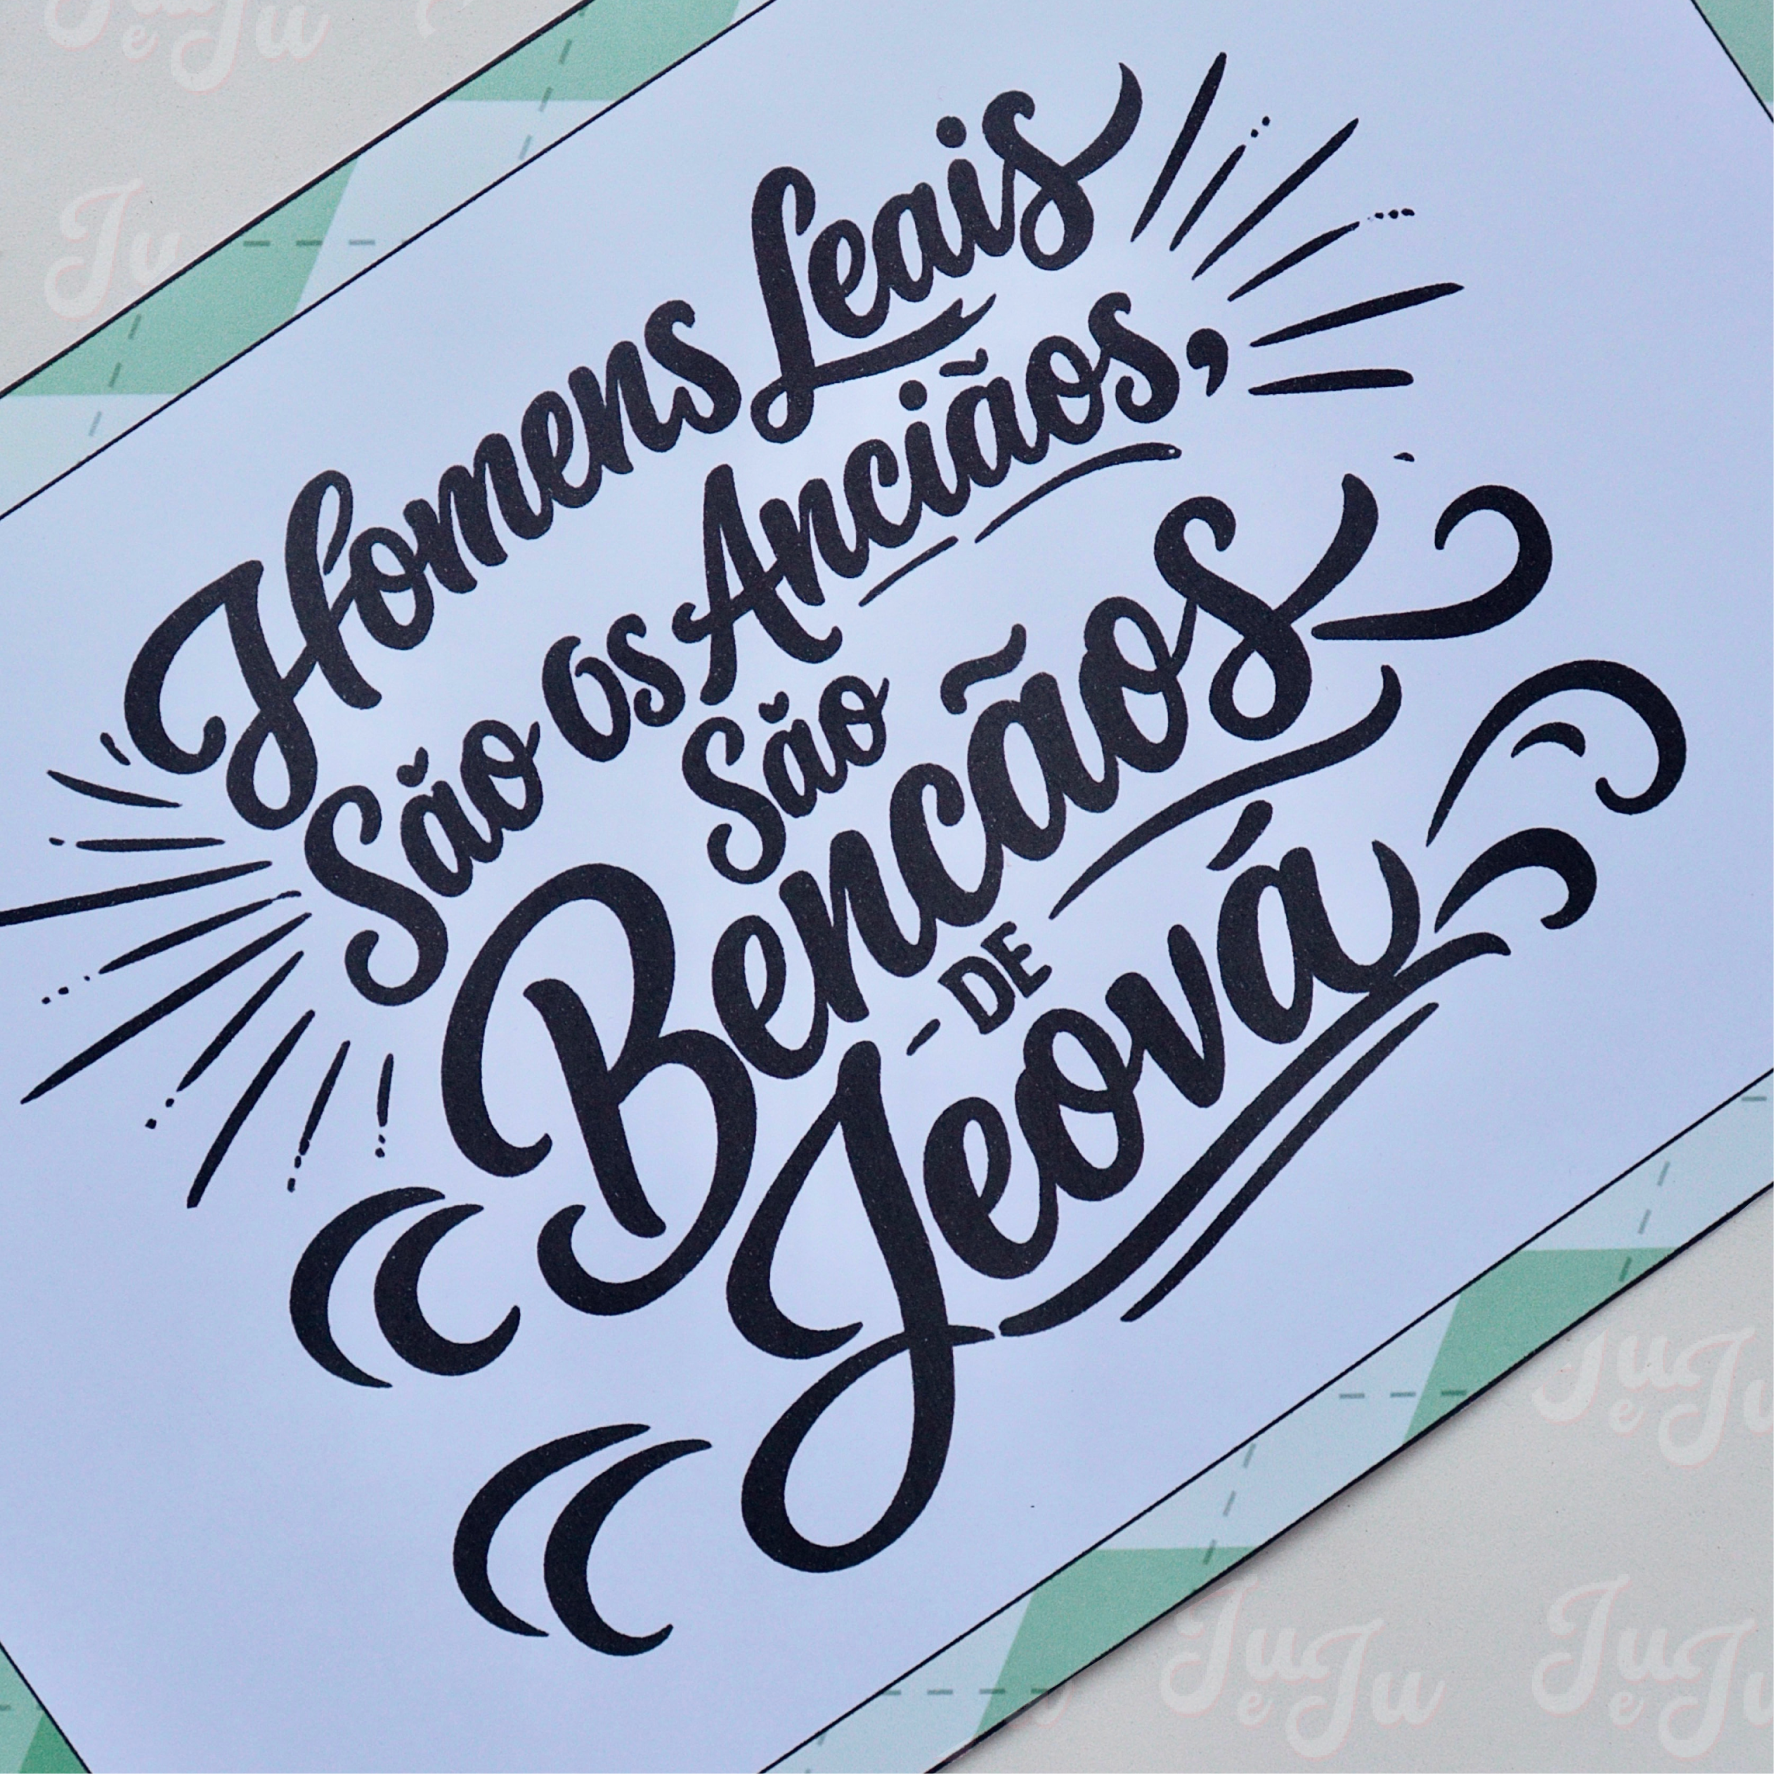 Ju e Ju
Ju
Homens Leais
São Os Anciãos,
São
Bencãos
DE
Jeová
Ju e Ju
Ju e Ju
Ju e Ju